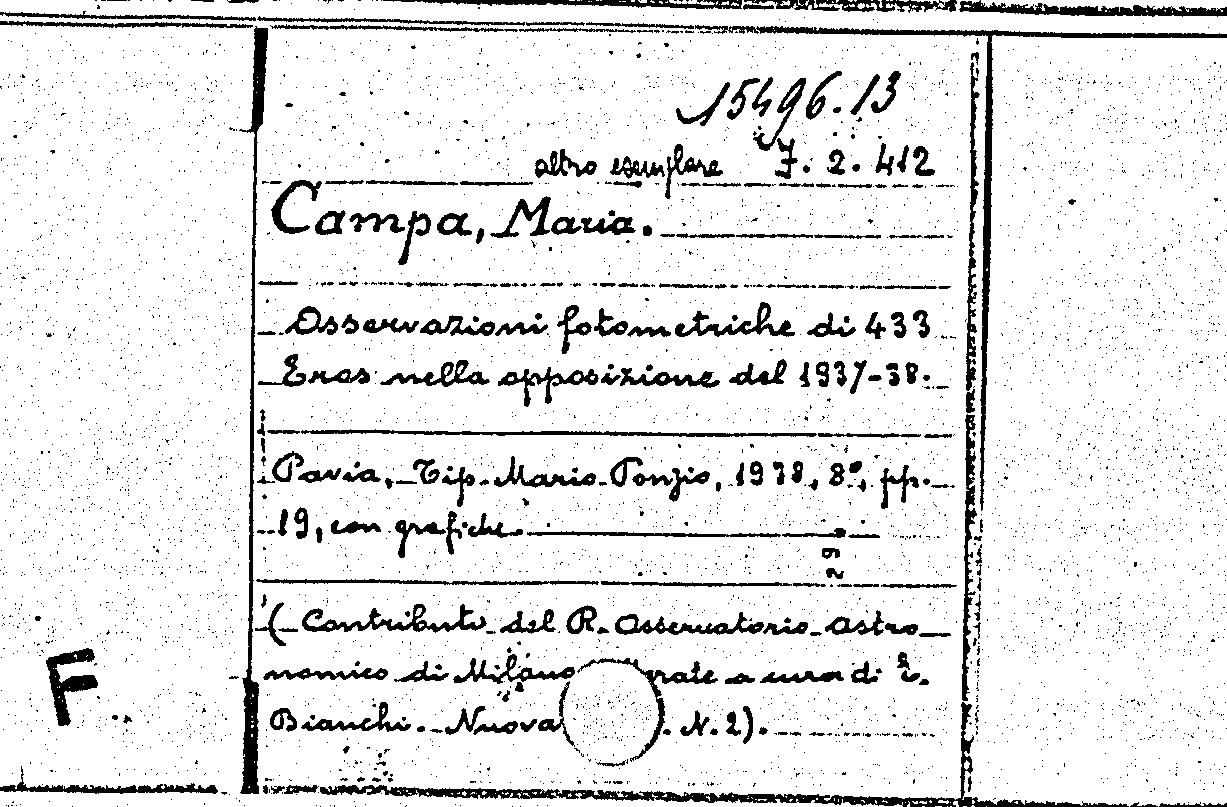 15496.13
altro esemplare 7. 2. 412
Campa, Maria.
Osservazioni fotometriche di 433
Eros nella opposizione del 1937-38.
Pavia, Tip. Mario Ponzio, 1938, 8º, pp.
19, con grafiche.
( Contributi del R. Osservatorio astro
nomico di Milano rate a cura di E.
Bianchi. Nuova . N. 2).
F